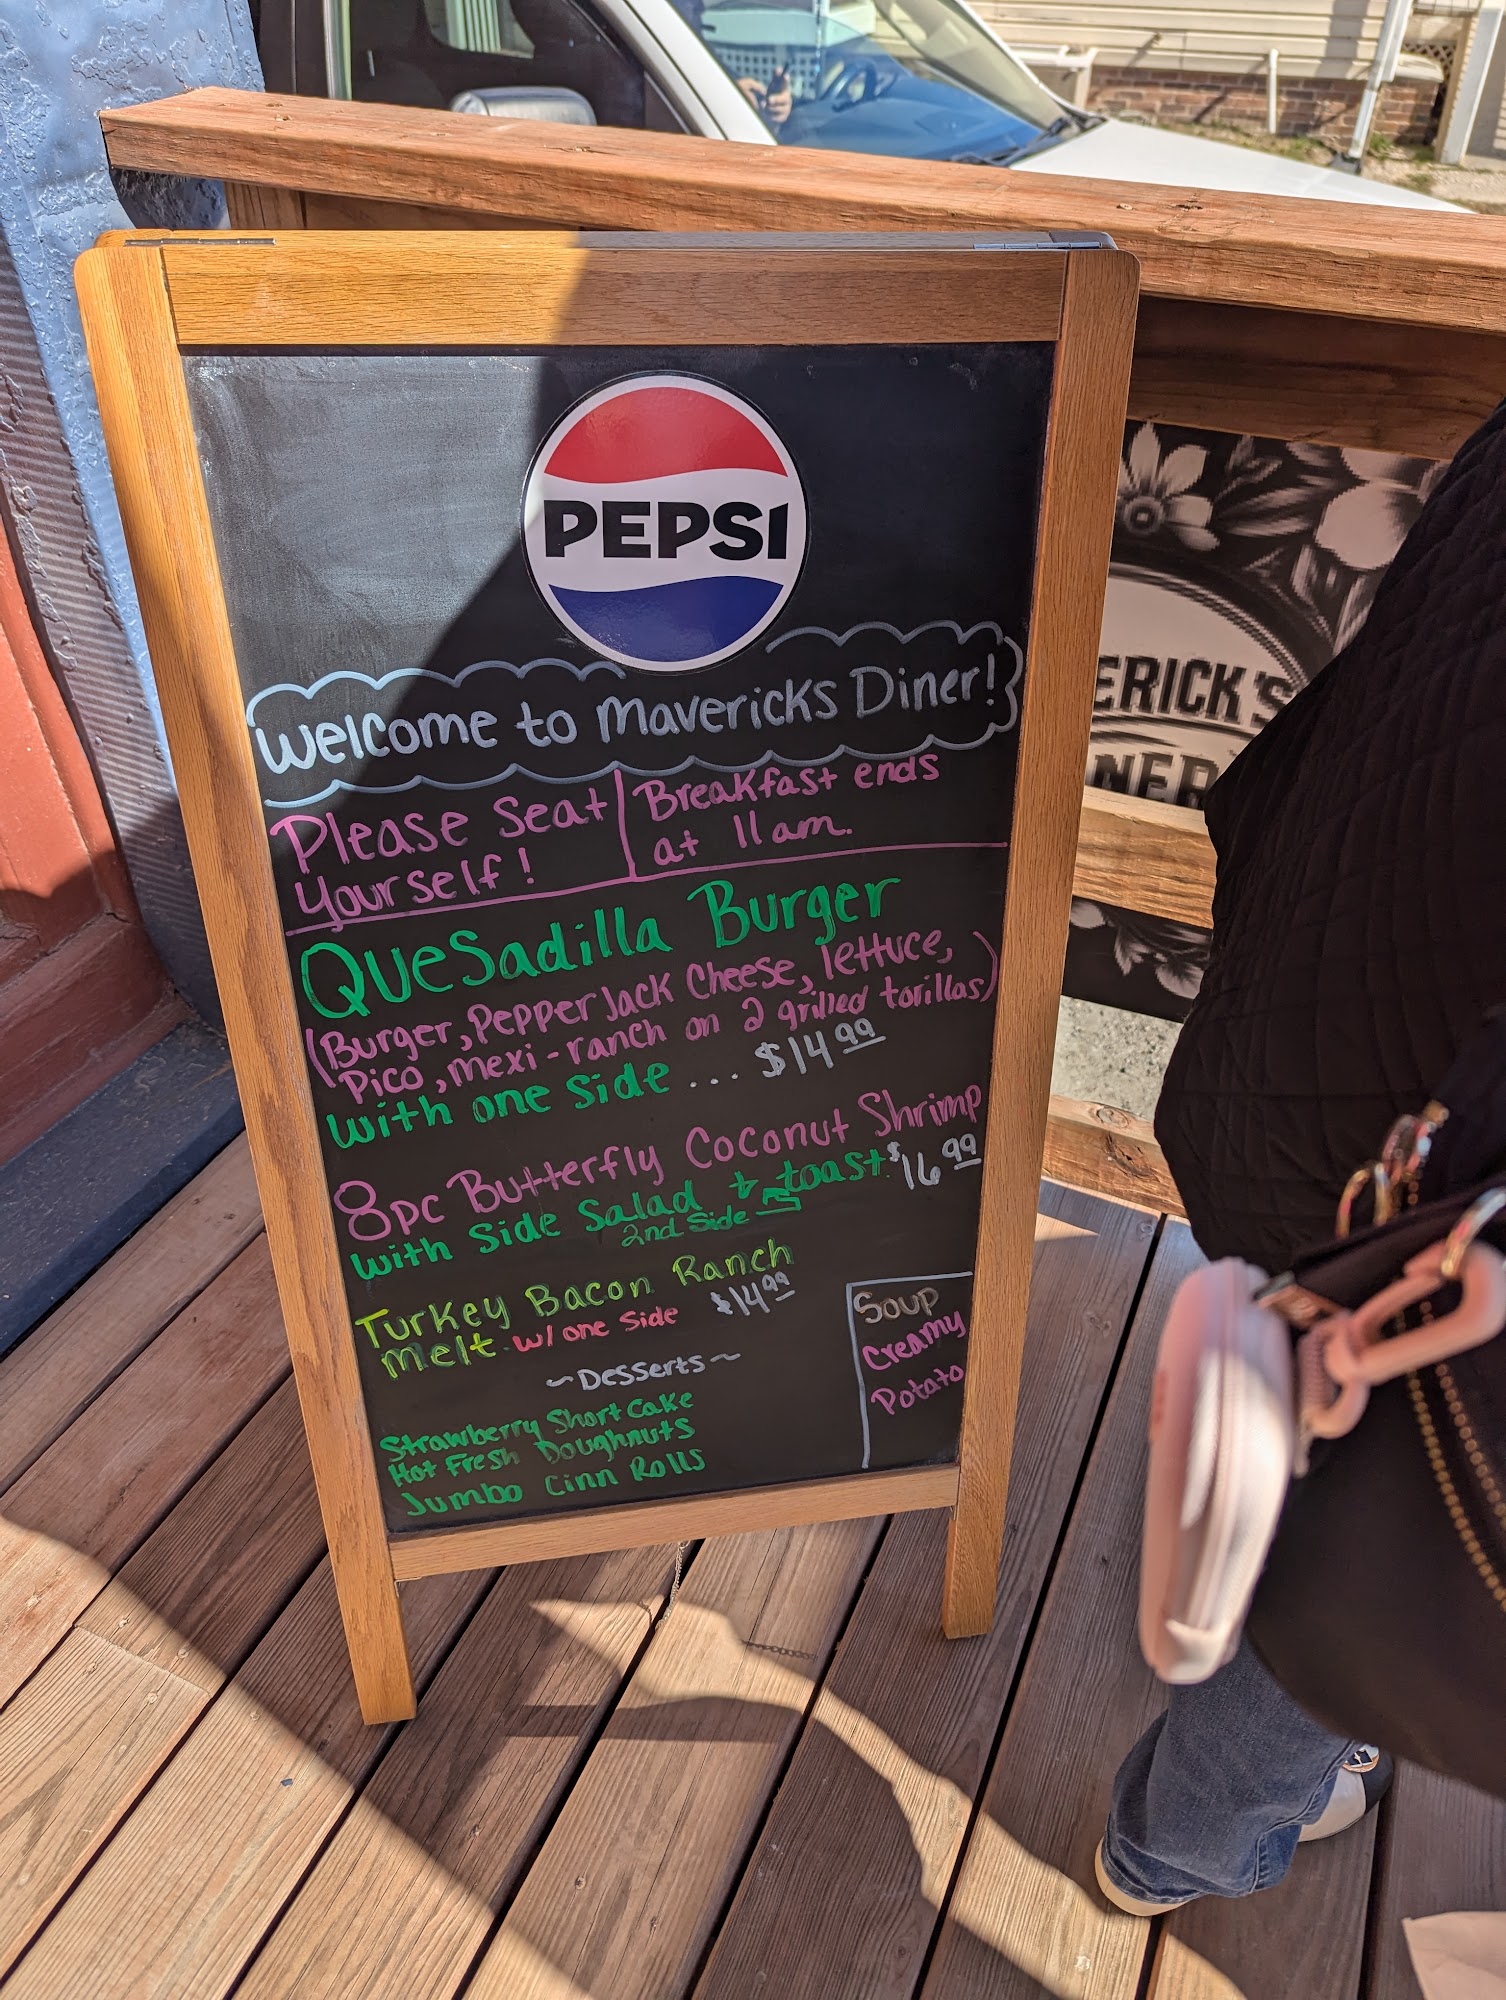 PEPSI
Welcome to Mavericks Diner!
Please Seat
Yourself!
Breakfast ends
at 11am.
Quesadilla Burger
(Burger, Pepper Jack Cheese, lettuce,
Pico, mexi-ranch on 2 grilled torillas)
with one side... $14.99
8pc Butterfly Coconut Shrimp
with side salad + toast. $16.99
2nd Side
Turkey Bacon Ranch
Melt w/ one side $14.99
~Desserts~
Strawberry Short Cake
Hot Fresh Doughnuts
Jumbo Cinn Rolls
Soup
Creamy
Potato
ERICK'S
NER